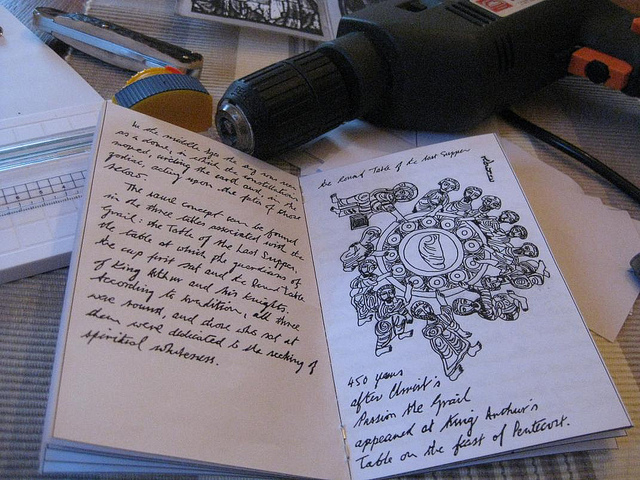 In the middle ages the sky was seen
as a dome, in which the constellations
moved, circling the earth and in the
zodiac, acting upon the fate of those
below.
The same concept can be found
in the three tables associated with the
Grail: the Table of the Last Supper,
the table at which the guardians of
the cup first sat and the Round Table
of King Arthur and his knights.
According to tradition, all three
were round, and those who sat at
them were dedicated to the seeking of
spiritual wholeness.
the Round Table of the Last Supper
450 years
after Christ's
Passion the Grail
appeared at King Arthur's
Table on the feast of Pentecost.